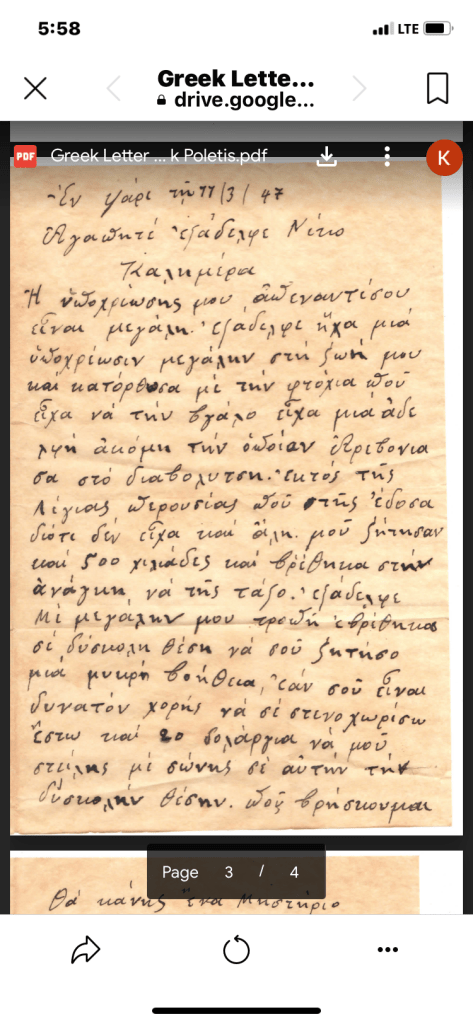 5:58
LTE
Greek Lette...
drive.google...
PDF Greek Letter ... k Poletis.pdf
K
Ἐν Ψάρι τῇ 11/3/47
Ἀγαπητέ ἐξάδελφε Νίτσο
Καλημέρα
Ἡ ὑποχρίωσης μου ἀπεναντίσου
εἶναι μεγάλη. ἐξάδελφε ἦχα μιά
ὑποχρίωσιν μεγάλην στή ζωή μου
και κατόρθοσα μέ τήν φτόχια ποῦ
εἶχα νά τήν βγάλο εἶχα μιά ἀδε
λφή ἀκόμη τήν ὁποίαν ἐτρεβονια
σα στό διαβολυτση. ἐκτός τῆς
λίγιας περουσίας ποῦ τῆς ἔδοσα
διότι δέν εἶχα καί ἄλη. μοῦ ζήτησαν
καί 500 χιλιάδες καί βρέθηκα στήν
ἀνάγκη νά τῆς τάξο. ἐξάδελφε
Μέ μεγάλην μου τροπή ἐβρέθηκα
σέ δύσκολη θέση νά σοῦ ζητήσο
μιά μικρή βοήθεια, ἐάν σοῦ εἶναι
δυνατόν χορής νά σέ στενοχωρίσω
ἔστω καί 20 δολάργια νά μοῦ
στείλης μέ σώνης σέ αὐτήν τήν
δύσκολήν θέσην. ποῦ βρήσκουμαι
Page 3 / 4
Θά κάνης ἕνα Μηστήριο